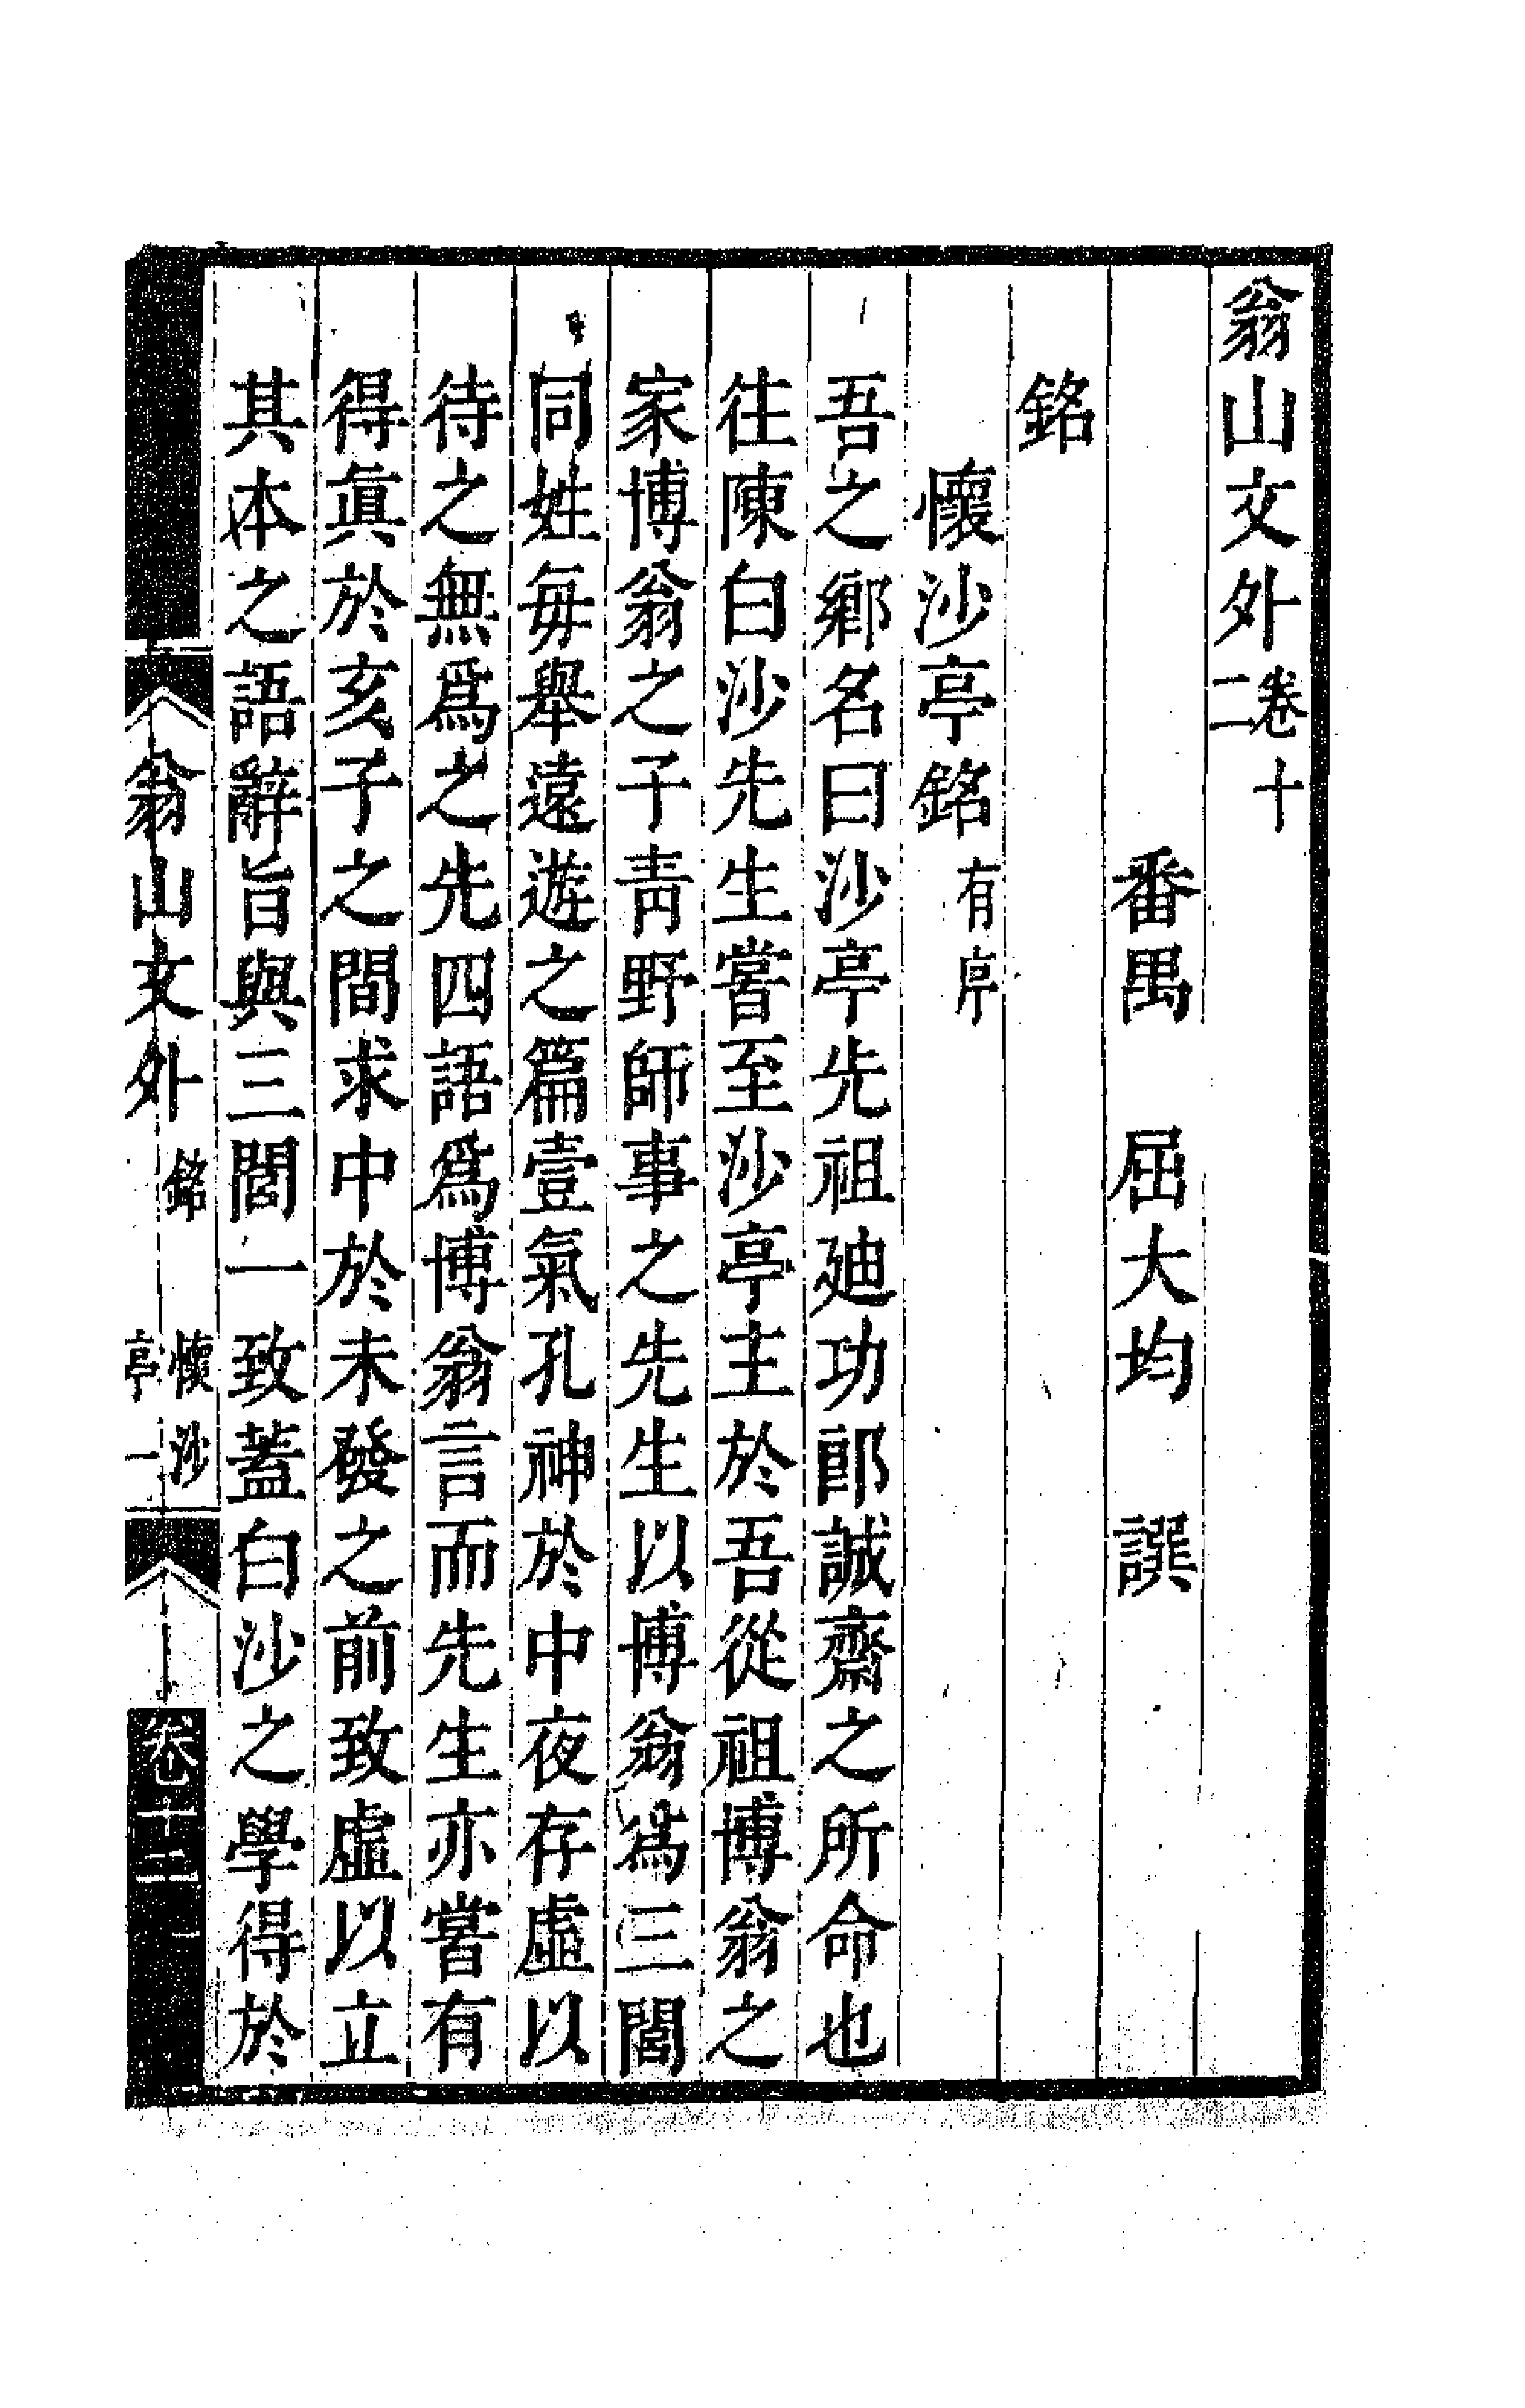 翁山文外卷十二
番禺　屈大均　譔
銘
懷沙亭銘有序
吾之鄉名曰沙亭先祖廸功郎誠齋之所命也
往陳白沙先生嘗至沙亭主於吾從祖博翁之
家博翁之子靑野師事之先生以博翁爲三閭
同姓每舉遠遊之篇壹氣孔神於中夜存虛以
待之無爲之先四語爲博翁言而先生亦嘗有
得眞於亥子之間求中於未發之前致虛以立
其本之語辭旨與三閭一致蓋白沙之學得於
翁山文外　銘　懷沙亭　一　卷十二